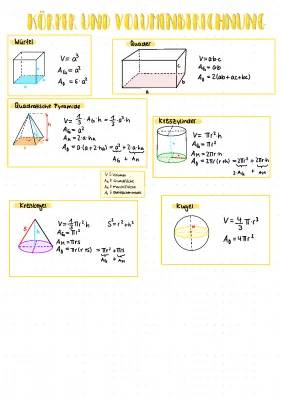 KÖRPER UND VOLUMENBERECHNUNG
Würfel
V = a³
A_G = a²
A_O = 6·a²
Quader
V = abc
A_G = ab
A_O = 2(ab+ac+bc)
a
b
c
Quadratische Pyramide
V = 1/3 A_G·h = 1/3 a²·h
A_G = a²
A_M = 2·a·h_a
A_O = a·(a+2·h_a) = a² + 2·a·h_a
A_G + A_M
Kreiszylinder
V = πr²h
A_G = πr²
A_M = 2πrh
A_O = 2πr(r+h) = 2πr² + 2πr·h
2·A_G + A_M
V = Volumen
A_G = Grundfläche
A_M = Mantelfläche
A_O = Oberflächeninhalt
Kreiskegel
V = 1/3 πr²h
S² = r² + h²
A_G = πr²
A_M = πrs
A_O = πr(r+s) = πr² + πrs
A_G + A_M
Kugel
V = 4/3 π·r³
A_O = 4πr²